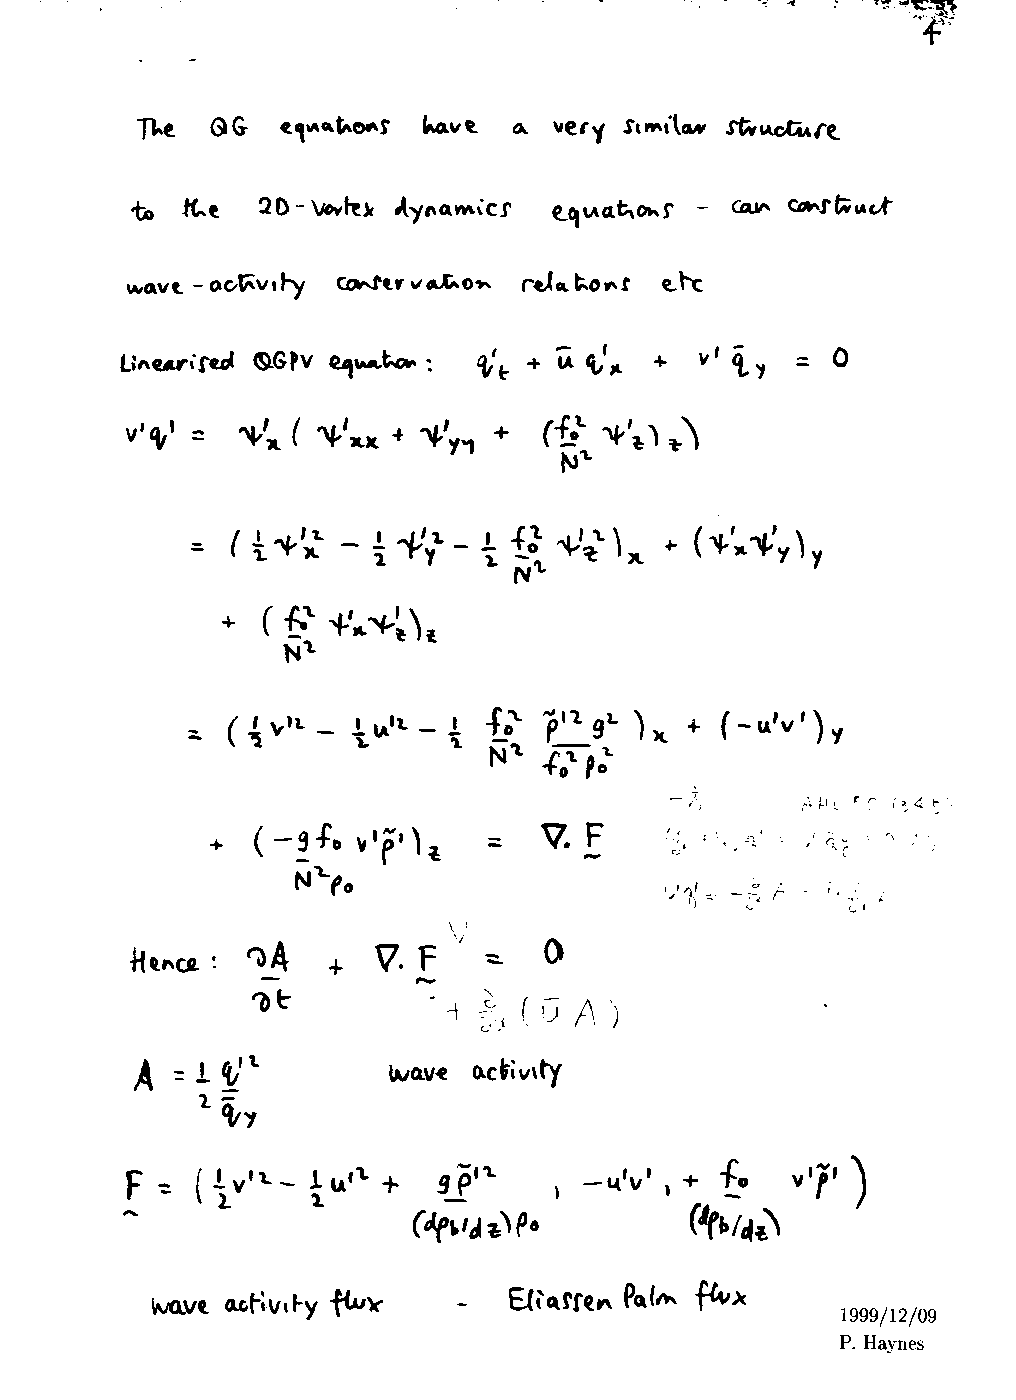 4
The QG equations have a very similar structure
to the 2D-Vortex dynamics equations - can construct
wave-activity conservation relations etc
Linearised QGPV equation: q'_t + ū q'_x + v' q̄_y = 0
v'q' = ψ'_x ( ψ'_xx + ψ'_yy + (f₀²/N² ψ'_z)_z )
= ( ½ ψ'_x² - ½ ψ'_y² - ½ f₀²/N² ψ'_z² )_x + (ψ'_x ψ'_y)_y
+ ( f₀²/N² ψ'_x ψ'_z )_z
= ( ½ v'² - ½ u'² - ½ f₀²/N² ρ̃'² g²/f₀² ρ₀² )_x + (-u'v')_y
+ ( -g f₀/N² ρ₀ v'ρ̃' )_z = ∇. F
Hence: ∂A/∂t + ∇. F = 0
+ ∂/∂x ( Ū A )
A = ½ q'²/q̄_y wave activity
F = ( ½ v'² - ½ u'² + g ρ̃'²/(dρ_b/dz) ρ₀ , -u'v' , + f₀/(dρ_b/dz) v'ρ̃' )
wave activity flux - Eliassen Palm flux
1999/12/09
P. Haynes